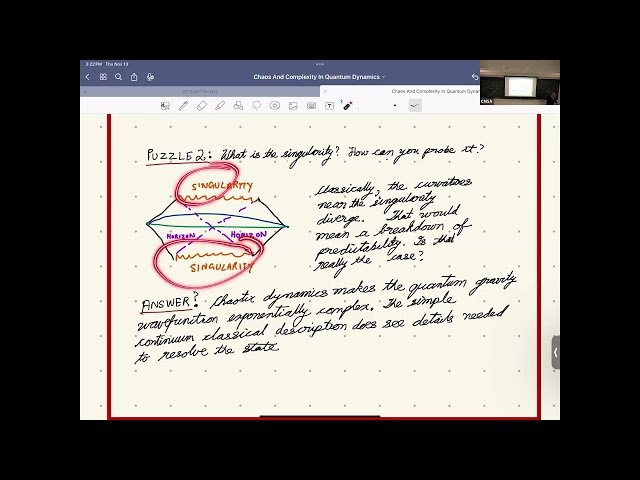 3:22 PM Thu Nov 13
Chaos And Complexity In Quantum Dynamics
Chaos And Complexity In Quantum Dynam
CMSA
PUZZLE 2: What is the singularity? How can you probe it?
SINGULARITY
HORIZON HORIZON
SINGULARITY
Classically, the curvatures
near the singularity
diverge. That would
mean a breakdown of
predictability. Is that
really the case?
ANSWER? Chaotic dynamics makes the quantum gravity
wavefunction exponentially complex. The simple
continuum classical description does see details needed
to resolve the state